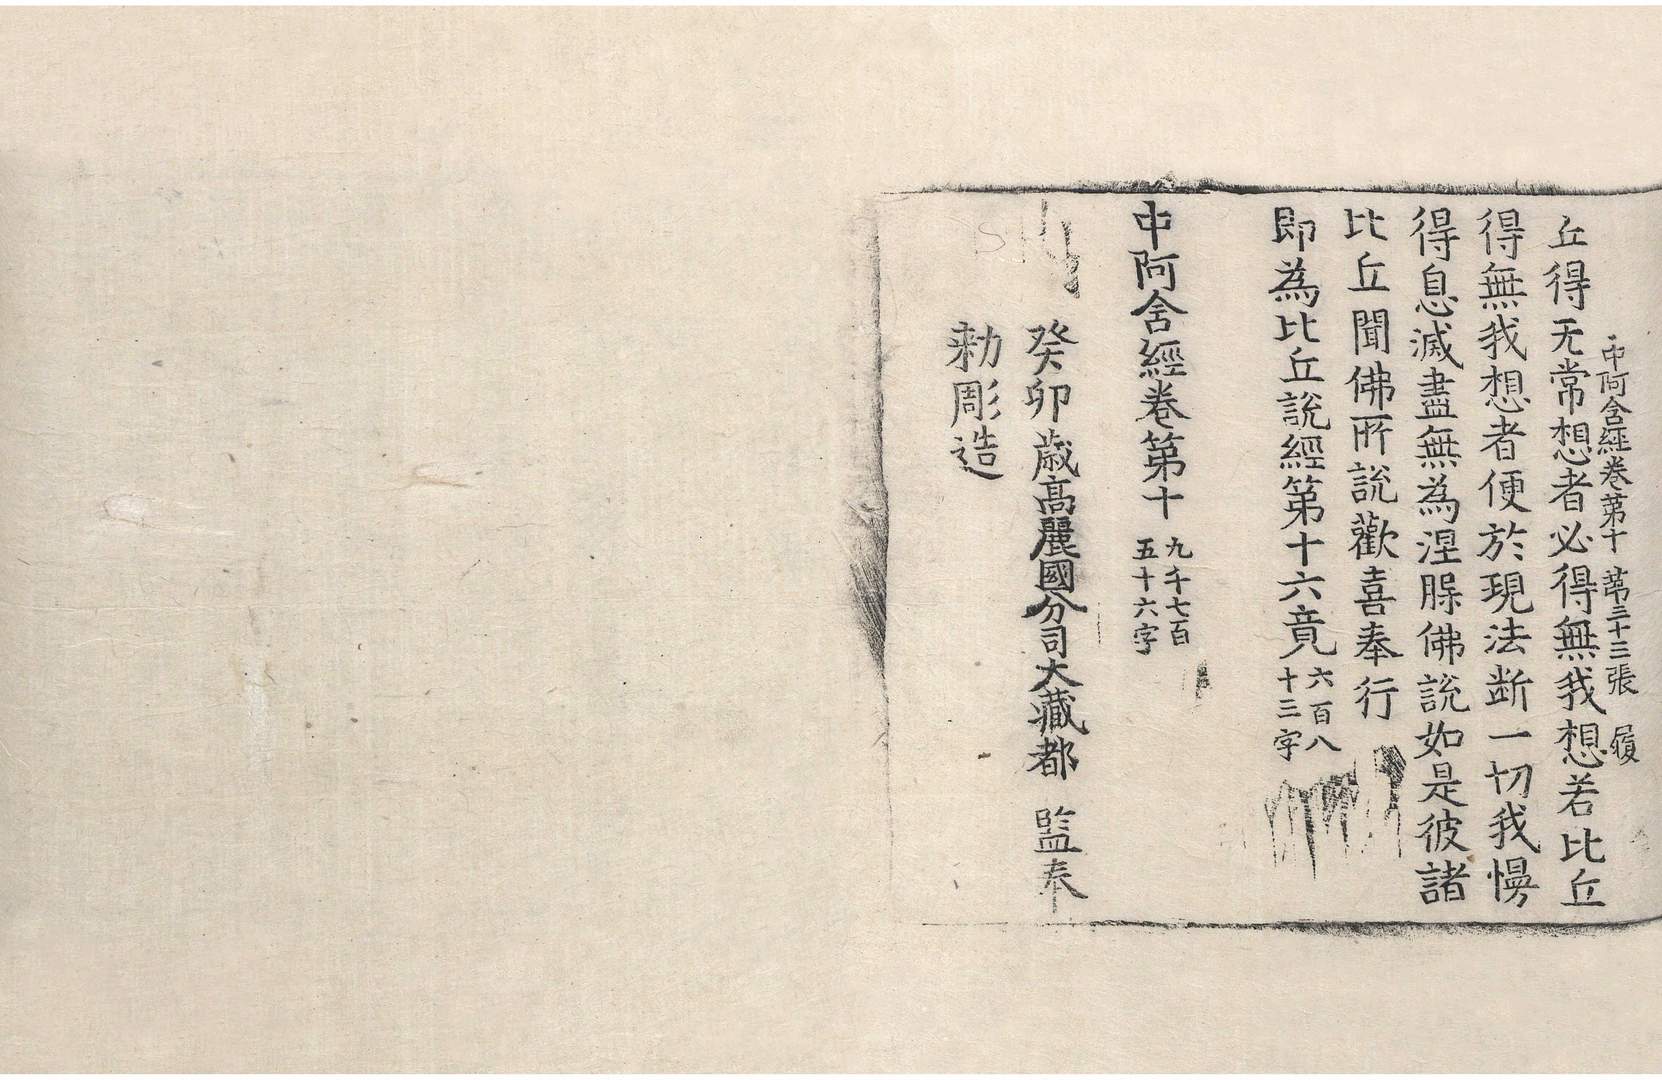 中阿含經卷第十 第三十三張 履
丘得无常想者必得無我想若比丘
得無我想者便於現法断一切我慢
得息滅盡無為涅脲佛說如是彼諸
比丘聞佛所說歡喜奉行
即為比丘說經第十六竟 六百八
十三字
中阿含經卷第十 九千七百
五十六字
癸卯歳高麗國分司大藏都監奉
勑彫造